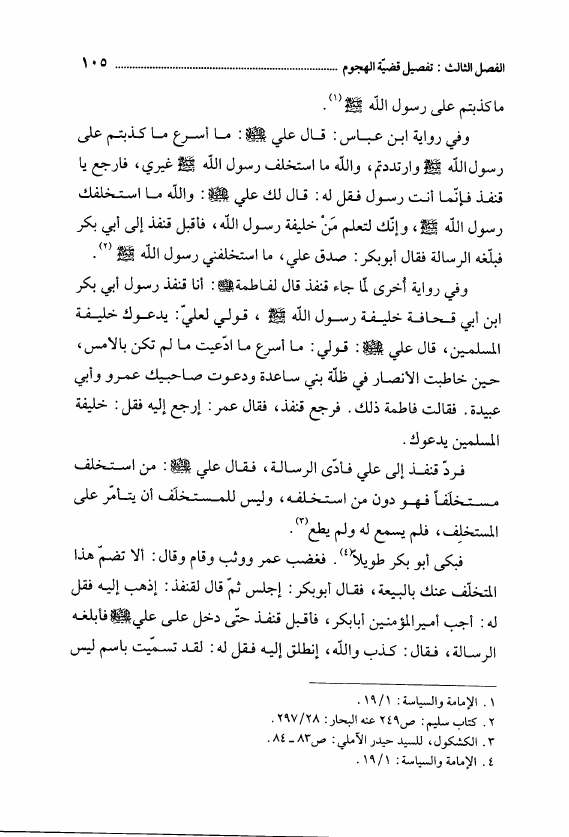 الفصل الثالث : تفصيل قضيّة الهجوم ........................................................ ١٠٥
ماكذبتم على رسول اللّه ﷺ(١).
وفي رواية ابن عباس: قال علي ﷺ: ما أسرع ما كذبتم على
رسول اللّه ﷺ وارتددتم، واللّه ما استخلف رسول اللّه ﷺ غيري، فارجع يا
قنفذ فإنّما أنت رسول فقل له: قال لك علي ﷺ: واللّه ما استخلفك
رسول اللّه ﷺ، وإنّك لتعلم مَنْ خليفة رسول اللّه، فأقبل قنفذ إلى أبي بكر
فبلّغه الرسالة فقال أبوبكر: صدق علي، ما استخلفني رسول اللّه ﷺ (٢).
وفي رواية أُخرى لمّا جاء قنفذ قال لفاطمة: أنا قنفذ رسول أبي بكر
ابن أبي قحافة خليفة رسول اللّه ﷺ ، قولي لعليّ: يدعوك خليفة
المسلمين، قال علي ﷺ: قولي: ما أسرع ما ادّعيت ما لم تكن بالامس،
حين خاطبت الانصار في ظلّة بني ساعدة ودعوت صاحبيك عمرو وأبي
عبيدة. فقالت فاطمة ذلك. فرجع قنفذ، فقال عمر: إرجع إليه فقل: خليفة
المسلمين يدعوك.
فردّ قنفذ إلى علي فأدّى الرسالة، فقال علي ﷺ: من استخلف
مستخلَفاً فهو دون من استخلفه، وليس للمستخلَف أن يتأمّر على
المستخلِف، فلم يسمع له ولم يطع(٣).
فبكى أبو بكر طويلاً(٤). فغضب عمر ووثب وقام وقال: ألا تضمّ هذا
المتخلّف عنك بالبيعة، فقال أبوبكر: إجلس ثمّ قال لقنفذ: إذهب إليه فقل
له: أجب أميرالمؤمنين أبابكر، فأقبل قنفذ حتّى دخل على علي فأبلغه
الرسالة، فقال: كذب واللّه، إنطلق إليه فقل له: لقد تسمّيت باسم ليس
١. الإمامة والسياسة: ١٩/١.
٢. كتاب سليم: ص٢٤٩ عنه البحار: ٢٩٧/٢٨.
٣. الكشكول، للسيد حيدر الآملي: ص٨٣ ـ ٨٤.
٤. الإمامة والسياسة: ١٩/١.